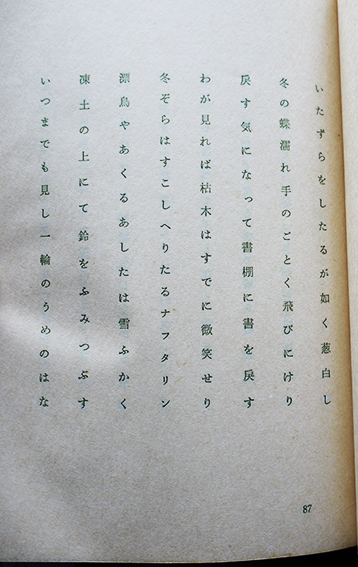 いたずらをしたるが如く葱白し
冬の蝶濡れ手のごとく飛びにけり
戻す気になって書棚に書を戻す
わが見れば枯木はすでに微笑せり
冬ぞらはすこしへりたるナフタリン
漂鳥やあくるあしたは雪ふかく
凍土の上にて鈴をふみつぶす
いつまでも見し一輪のうめのはな
87